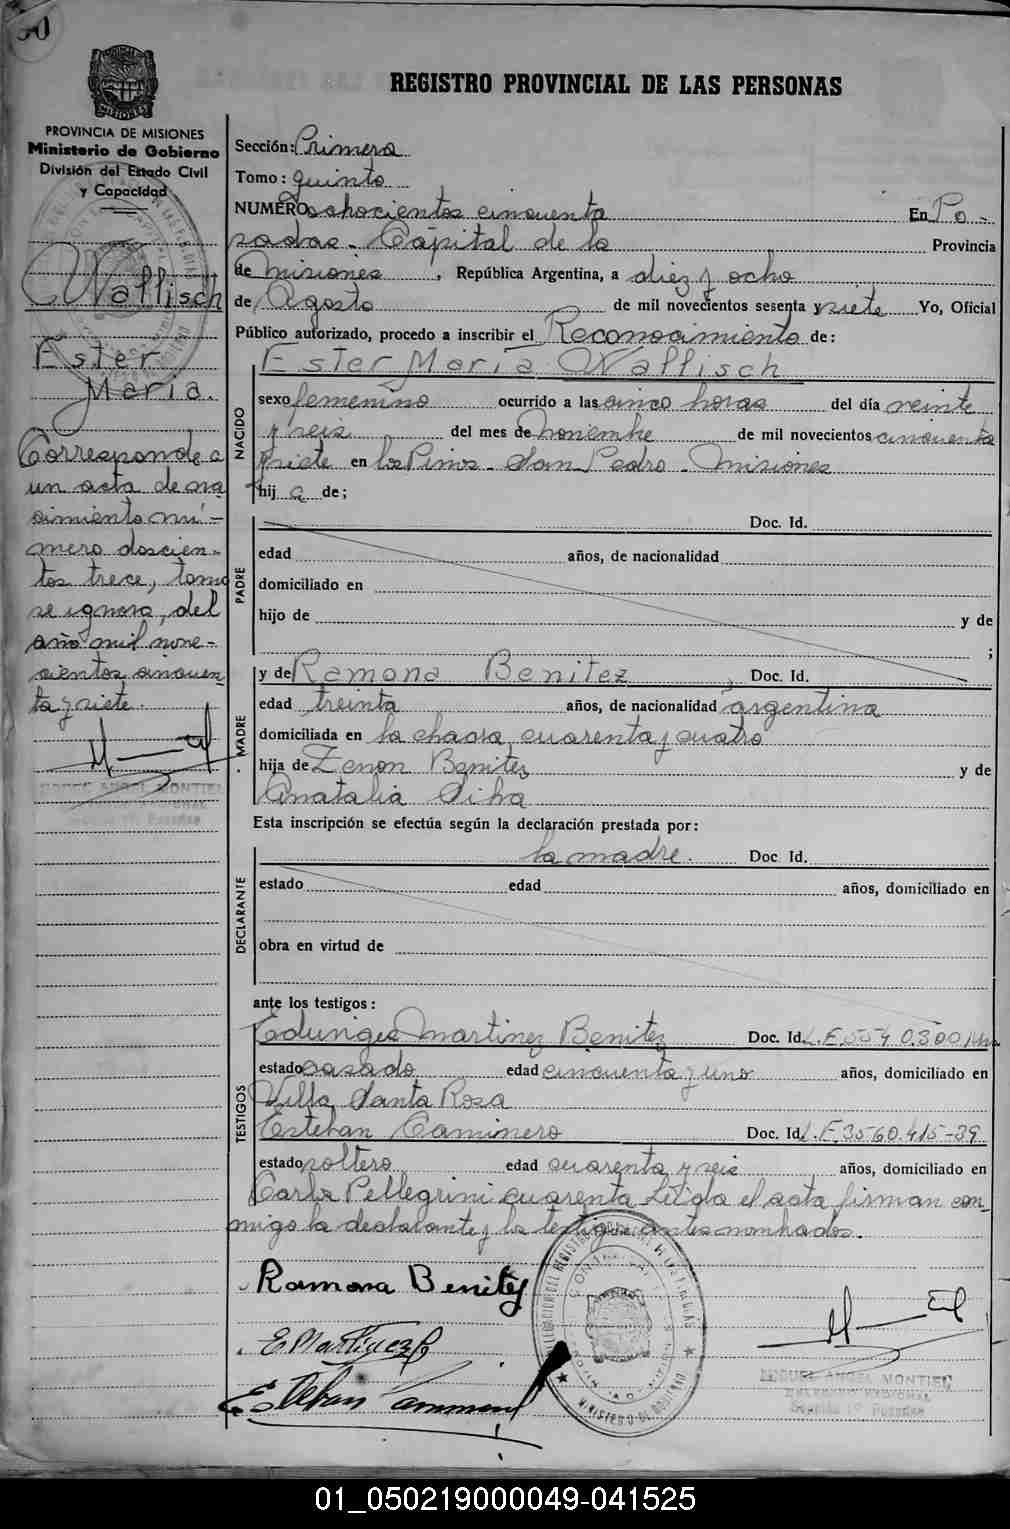 50
REGISTRO PROVINCIAL DE LAS PERSONAS
PROVINCIA DE MISIONES
Ministerio de Gobierno
División del Estado Civil
y Capacidad
Wallisch
Ester
María.
Corresponde a
un acta de na
cimiento nú-
mero doscien-
tos trece, tomo
se ignora, del
año mil nove-
cientos cincuen
ta y siete.
MIGUEL ANGEL MONTIEL
Sección: Primera
Tomo: quinto
NUMERO ochocientos cincuenta En Po-
sadas - Capital de la Provincia
de Misiones, República Argentina, a diez y ocho
de Agosto de mil novecientos sesenta y siete Yo, Oficial
Público autorizado, procedo a inscribir el Reconocimiento de:
Ester María Wallisch
NACIDO
sexo femenino ocurrido a las cinco horas del día veinte
y seis del mes de noviembre de mil novecientos cincuenta
y siete en los Pinos - San Pedro - Misiones
hij a de;
PADRE
Doc. Id.
edad años, de nacionalidad
domiciliado en
hijo de y de
;
MADRE
y de Ramona Benitez, Doc. Id.
edad treinta años, de nacionalidad argentina
domiciliada en la chacra cuarenta y cuatro
hija de Zenon Benitez y de
Anatalia Silva
Esta inscripción se efectúa según la declaración prestada por:
DECLARANTE
la madre. Doc. Id.
estado edad años, domiciliado en
obra en virtud de
ante los testigos:
TESTIGOS
Eduniges Martinez Benitez Doc. Id. L.E.
estado casado edad cincuenta y uno años, domiciliado en
Villa Santa Rosa
Esteban Caminero Doc. Id. L.E. 3560.415-39
estado soltero edad cuarenta y seis años, domiciliado en
Carlos Pellegrini cuarenta Leída el acta firman con-
migo la declarante y los testigos antes nombrados.
Ramona Benitez
E Martinez B
Esteban Caminero
MIGUEL ANGEL MONTIEL
Sección 1º Posadas
01_050219000049-041525